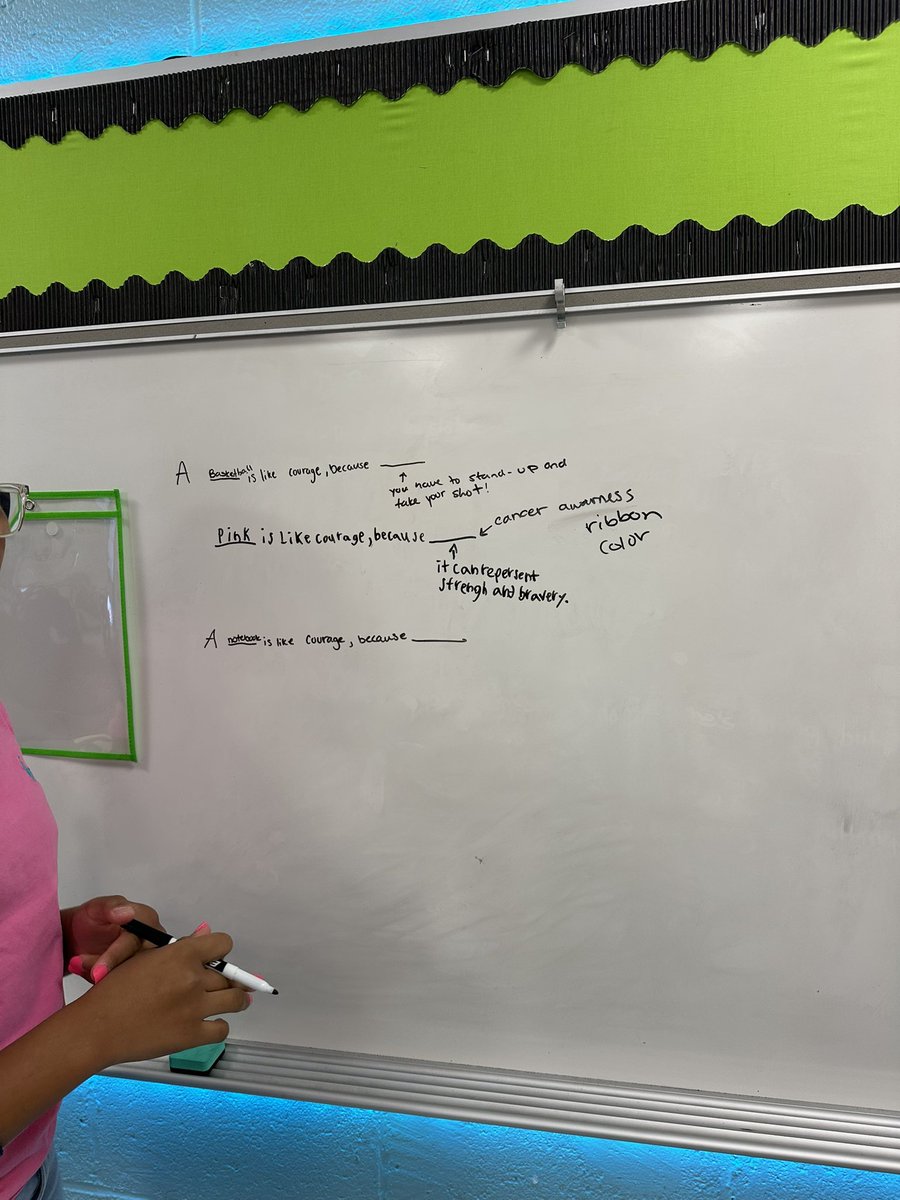 A Basketball is like courage, because ____
you have to stand-up and
take your shot!
Pink is like courage, because ____
cancer awarness
ribbon
color
it can repersent
strengh and bravery.
A notebook is like courage, because ____